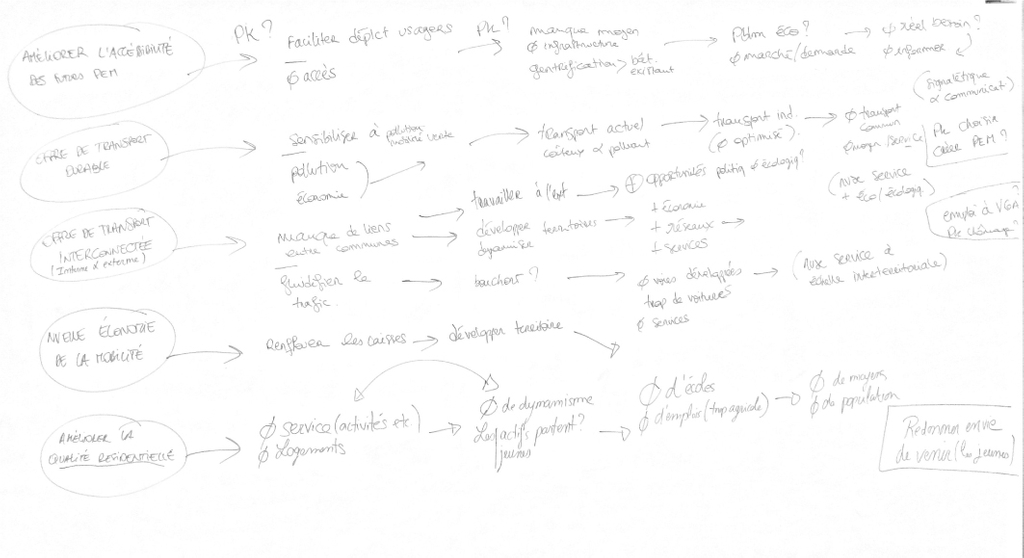 AMÉLIORER L'ACCÉSSIBILITÉ
DES futurs PEM
PK?
Faciliter déplct usagers
∅ accès
PK?
manque moyen
∅ infrastructure
gentrification > bât.
existant
Pblm éco?
∅ marché/demande
∅ réel besoin?
∅ informer
(signalétique
& communicat°)
OFFRE DE TRANSPORT
DURABLE
Sensibiliser à pollution
mobilité verte
pollution
économie
transport actuel
coûteux & polluant
transport ind.
(∅ optimisé)
∅ transport
commun
∅ moyen/service
Pk choisir
créer PEM?
OFFRE DE TRANSPORT
INTERCONNECTÉE
(Interne & externe)
manque de liens
entre communes
travailler à l'ext
⊕ opportunités politiq & écologiq?
(nvx service
+ éco/écologiq)
développer territoires
dynamiser
+ économie
+ réseaux
+ services
emploi à VGA?
Pk chômage?
fluidifier le
trafic.
bouchon?
∅ voies développées
trop de voitures
∅ services
(nvx service à
échelle interterritoriale)
NVELLE ÉCONOMIE
DE LA MOBILITÉ
Renflouer les caisses
développer territoire
AMÉLIORER LA
QUALITÉ RESIDENTIELLE
∅ service (activités etc.)
∅ Logements
∅ de dynamisme
Les actifs partent?
jeunes
∅ d'écoles
∅ d'emplois (trop agricole)
∅ de moyens
∅ de population
Redonner envie
de venir (les jeunes)